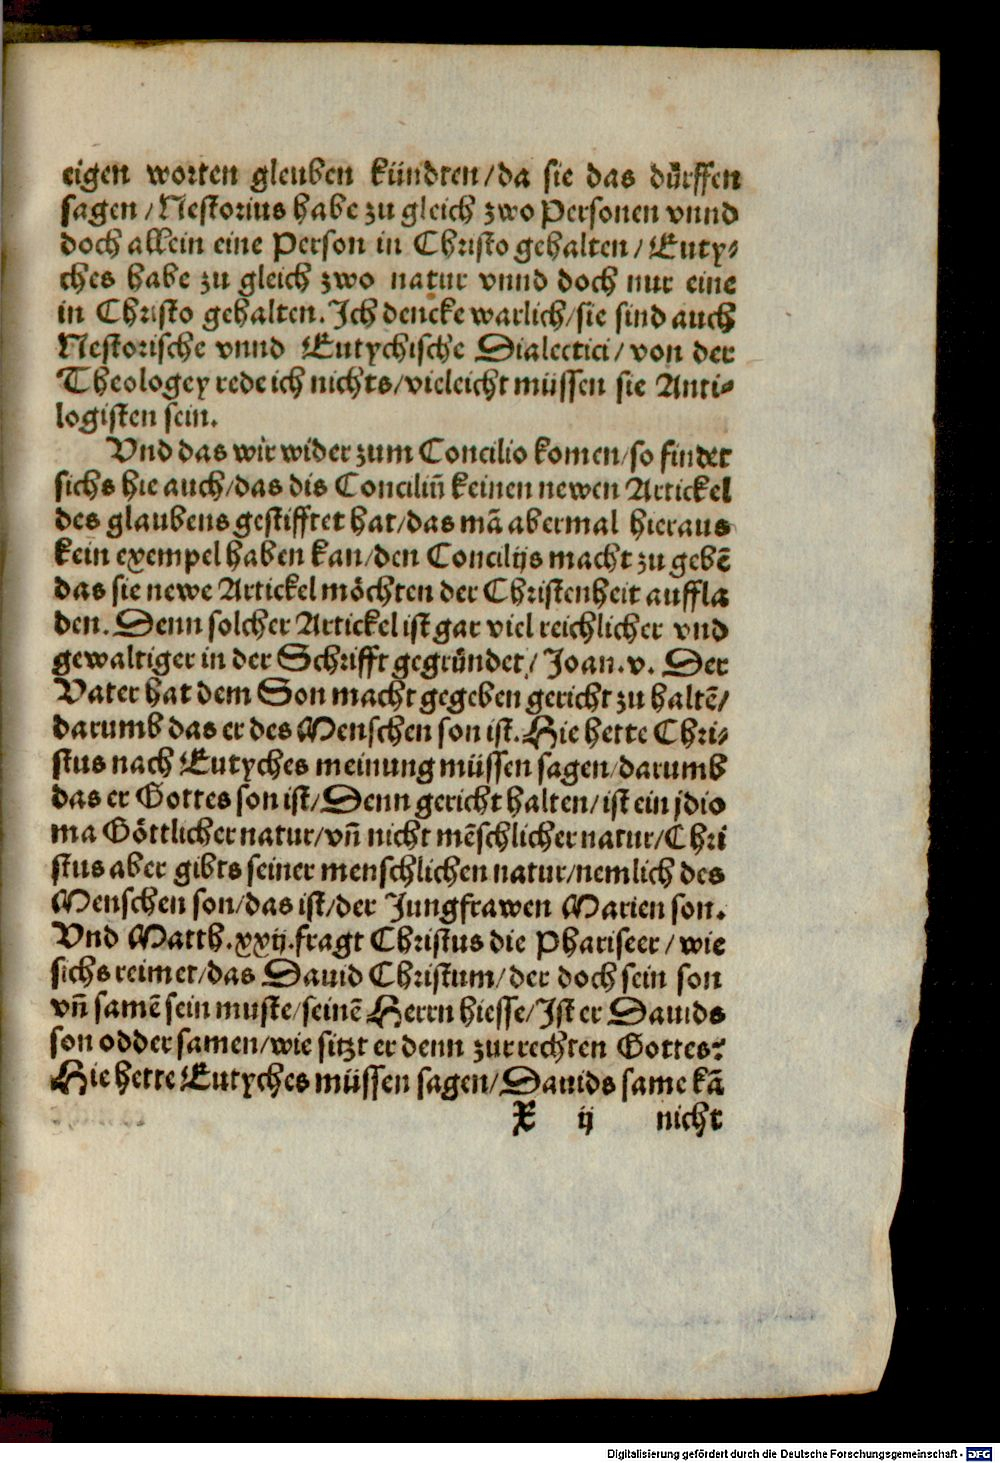 eigen worten gleuben kündten/da sie das dürffen
sagen/Nestorius habe zu gleich zwo Personen vnnd
doch allein eine Person in Christo gehalten/Euty⸗
ches habe zu gleich zwo natur vnnd doch nur eine
in Christo gehalten. Ich dencke warlich/sie sind auch
Nestorische vnnd Eutychische Dialectici/von der
Theologey rede ich nichts/vieleicht müssen sie Anti⸗
logisten sein.
Vnd das wir wider zum Concilio komen/so findet
sichs hie auch/das dis Conciliū keinen newen Artickel
des glaubens gestifftet hat/das mā abermal hieraus
kein exempel haben kan/den Concilijs macht zu gebē
das sie newe Artickel möchten der Christenheit auffla
den. Denn solcher Artickel ist gar viel reichlicher vnd
gewaltiger in der Schrifft gegründet/Joan.v. Der
Vater hat dem Son macht gegeben gericht zu haltē/
darumb das er des Menschen son ist. Hie hette Chri⸗
stus nach Eutyches meinung müssen sagen/darumb
das er Gottes son ist/Denn gericht halten/ist ein jdio
ma Göttlicher natur/vn̄ nicht mēschlicher natur/Chri
stus aber gibts seiner menschlichen natur/nemlich des
Menschen son/das ist/der Jungfrawen Marien son.
Vnd Matth.xxij.fragt Christus die Phariseer/wie
sichs reimet/das Dauid Christum/der doch sein son
vn̄ samē sein muste/seinē Herrn hiesse/Ist er Dauids
son odder samen/wie sitzt er denn zur rechten Gottes?
Hie hette Eutyches müssen sagen/Dauids same kā
X ij nicht
Digitalisierung gefördert durch die Deutsche Forschungsgemeinschaft - DFG